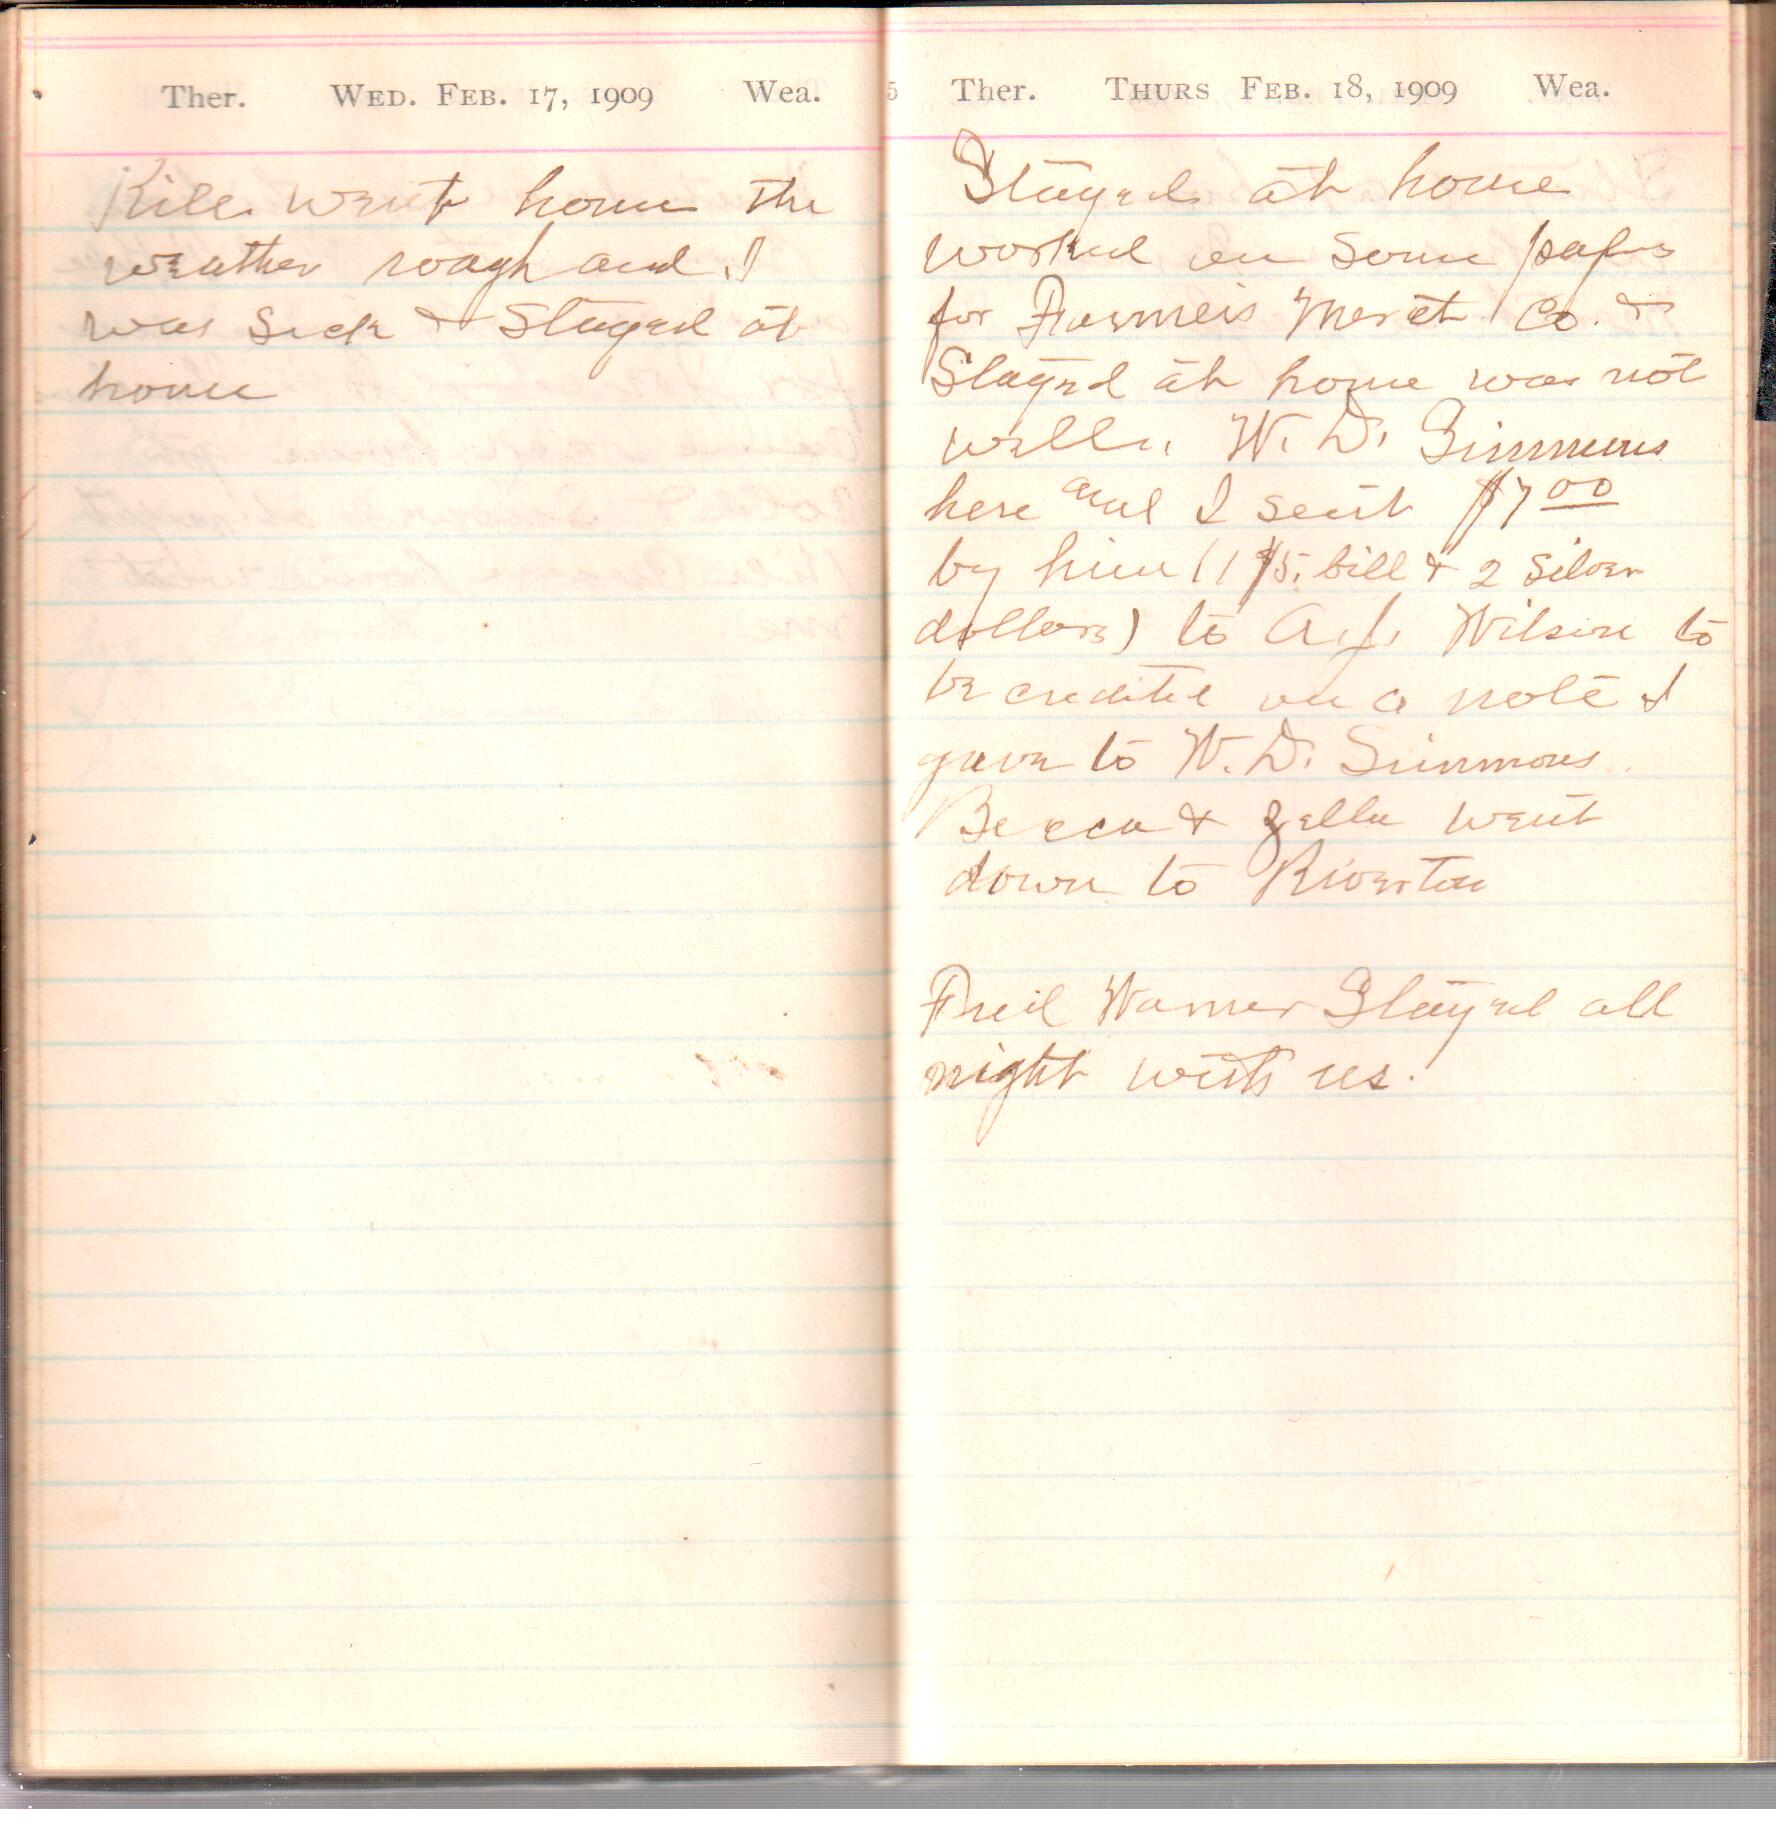 Ther. WED. FEB. 17, 1909 Wea.
Kile went home the
weather rough and I
was sick & stayed at
home
5
Ther. THURS FEB. 18, 1909 Wea.
Stayed at home
worked on some papers
for Farmers Merct Co. &
Stayed at home was not
well. W. D. Simmons
here and I sent $7 00
by him (1 $5. bill & 2 silver
dollars) to A. J. Wilson to
be credited on a note I
gave to W. D. Simmons.
Becca & Zella went
down to Riverton
Fred Warner Stayed all
night with us.